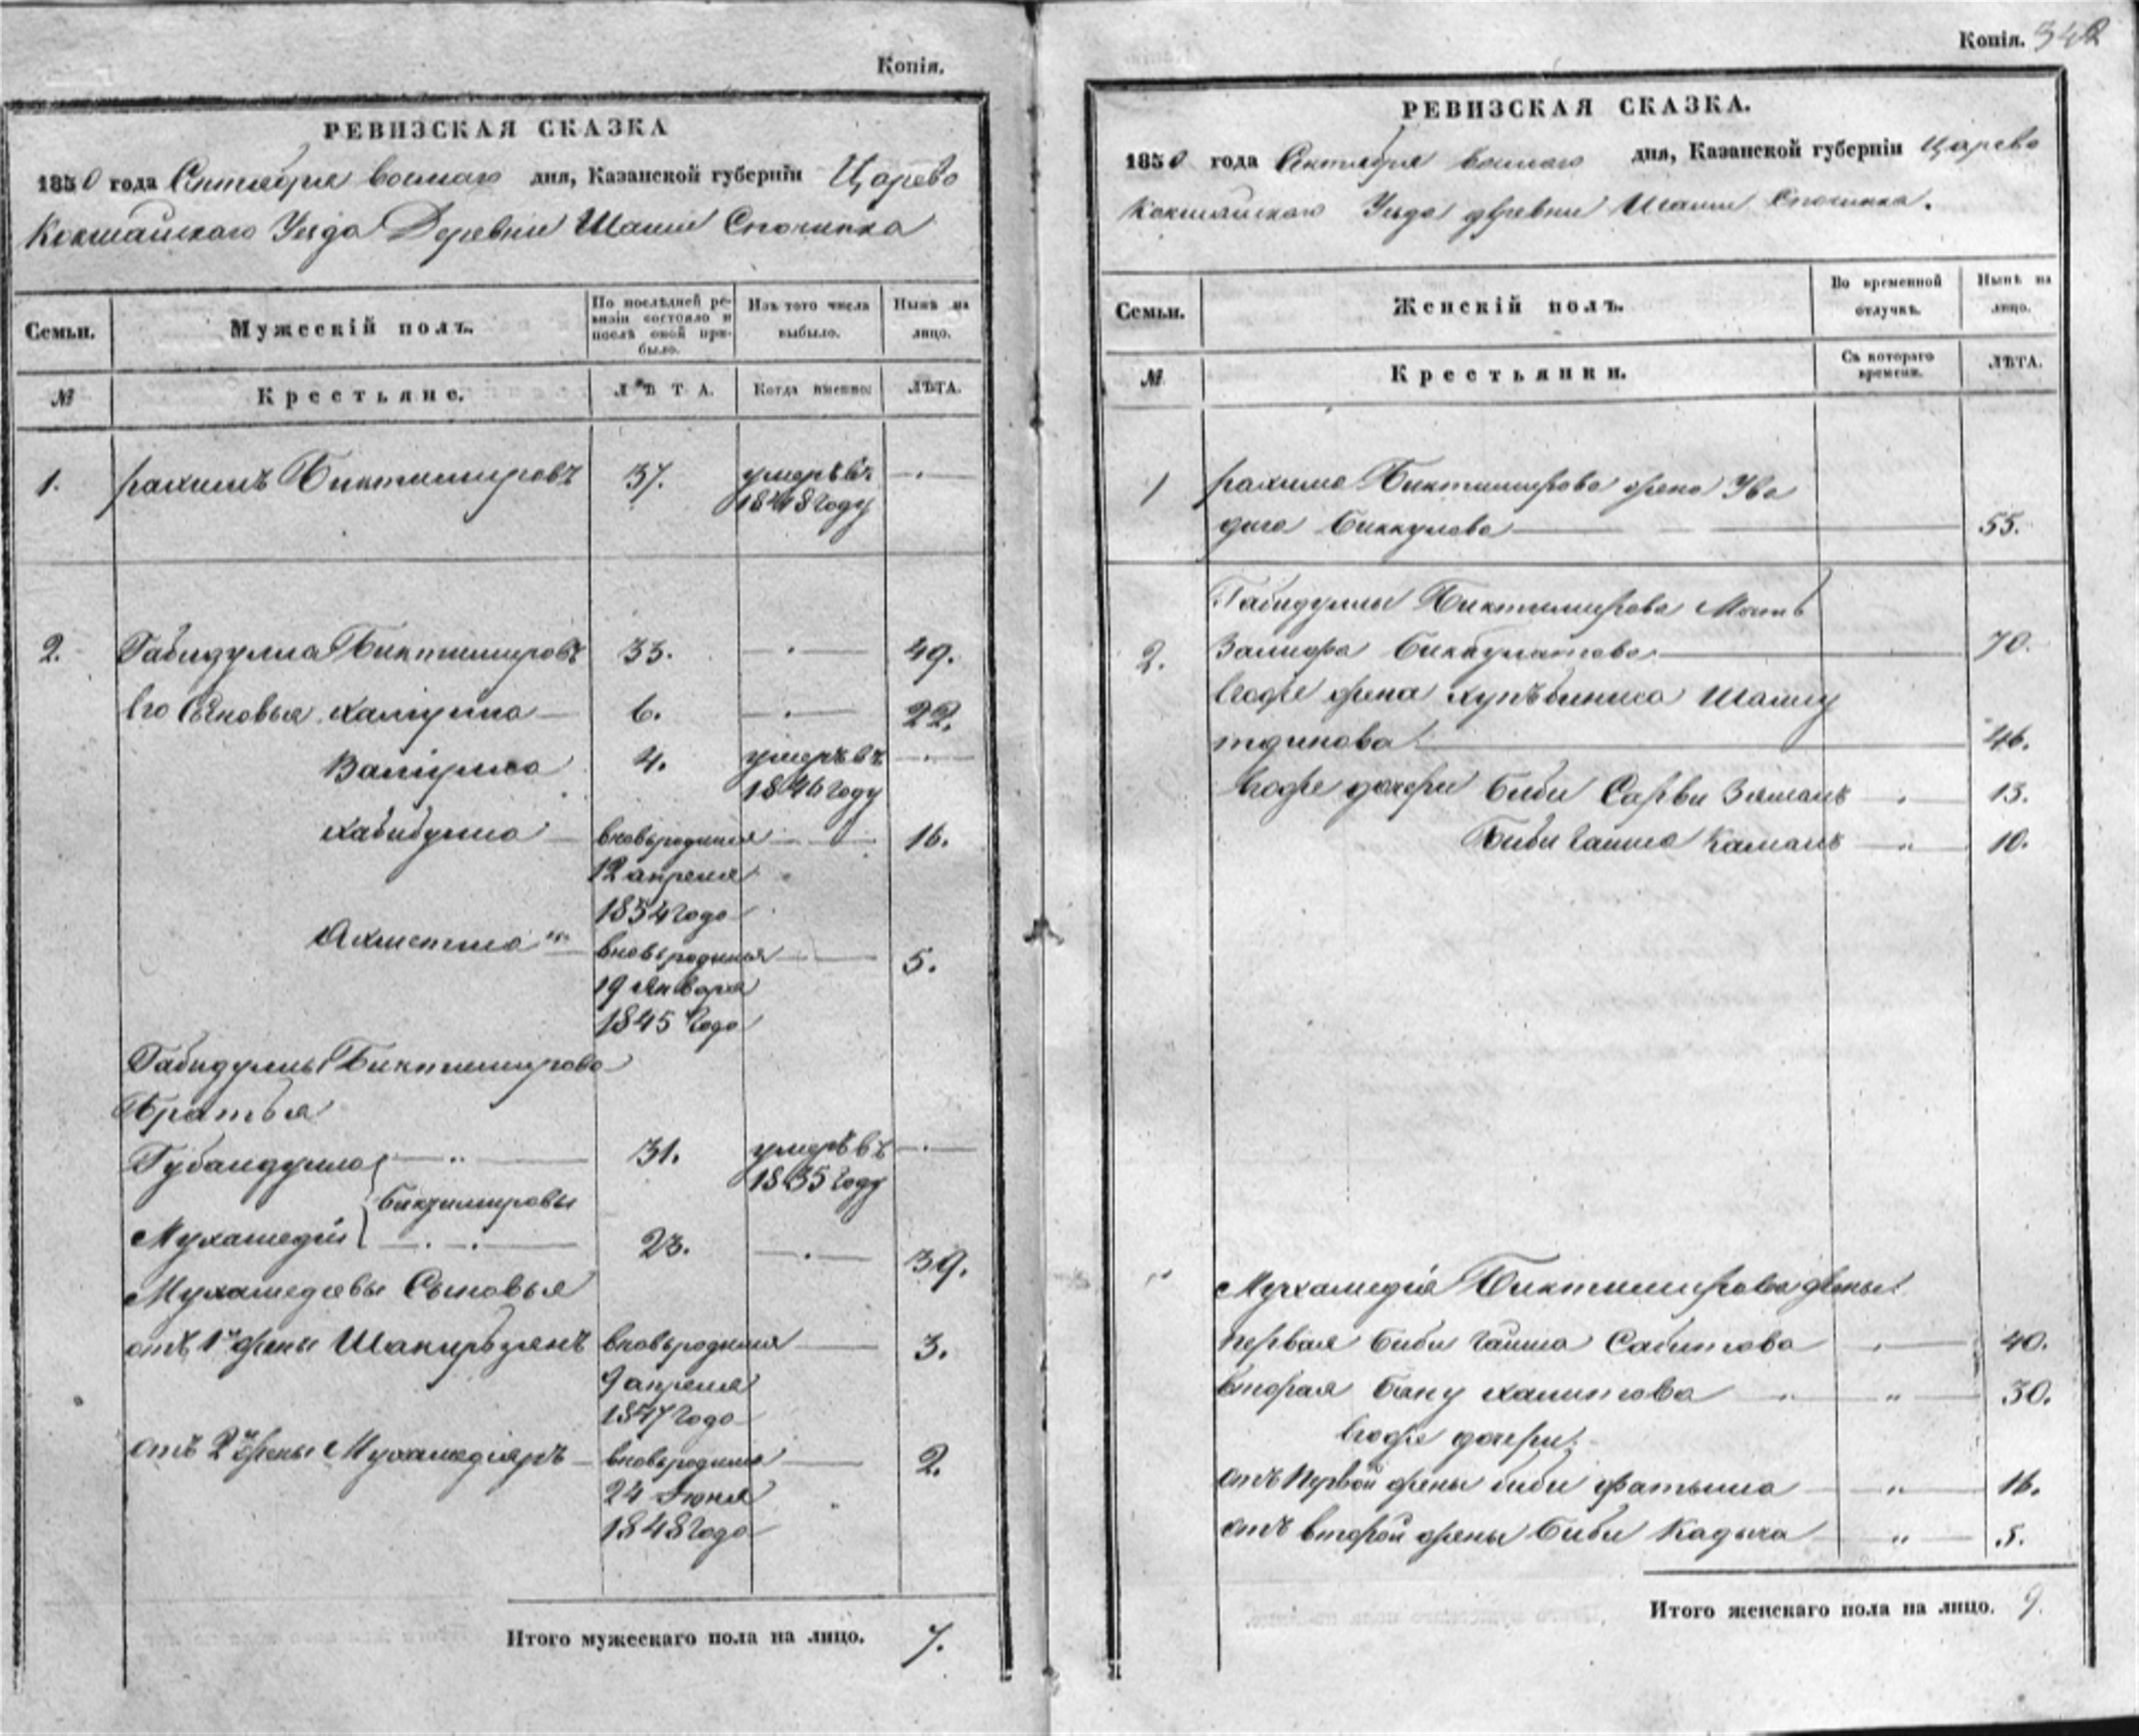 Копія.
РЕВИЗСКАЯ СКАЗКА
1850 года Сентября восмаго дня, Казанской губерніи Царево
Кокшайскаго Уезда Деревни Шаши Спочинка
Семьи.
Мужескій полъ.
По послѣдней ре-
визіи состояло и
послѣ оной при-
было.
Изъ того числа
выбыло.
Нынѣ на
лицо.
№
Крестьяне.
ЛѢТА.
Когда именно:
ЛѢТА.
1. рахимъ Биктимировъ 37. умеръ въ
1848 году
2. Габидулла Биктимировъ 33. 49.
Его Сыновья халиулла 6. 22.
Валиулла 4. умеръ въ
1846 году
хабибулла вновьродился 16.
12 апреля
1834 года
Ахметша вновьродился 5.
19 Января
1845 года
Габидуллы Биктимирова
Братья
Губайдулла 31. умеръ въ
1835 году
Биктимировы
Мухамедій 23. 39.
Мухамедіевы Сыновья
отъ 1й жены Шакирьзянъ вновьродился 3.
9 апреля
1847 года
отъ 2й жены Мухамедіяръ вновьродился 2.
24 Июня
1848 года
Итого мужескаго пола на лицо. 7.
Копія. 342
РЕВИЗСКАЯ СКАЗКА.
1850 года Сентября восмаго дня, Казанской губерніи Царево
Кокшайскаго Уезда деревни Шаши Спочинка.
Семьи.
Женскій полъ.
Во временной
отлучкѣ.
Нынѣ на
лицо.
№
Крестьянки.
Съ котораго
времени.
ЛѢТА.
1 рахима Биктимирова жена
Биккулова 55.
Габидуллы Биктимирова Мать
2. Бикбулатова 70.
Eгоже жена Шамсу
тдинова 46.
Eгоже дочери Биби Сарви Заманъ 13.
Биби Гайша Камалъ 10.
Мухамедія Биктимирова жены:
первая Биби Гайша Сабитова 40.
вторая Бану халитова 30.
Eгоже дочери:
отъ первой жены биби фатыма 16.
отъ второй жены Биби Кадыча 5.
Итого женскаго пола на лицо. 9.